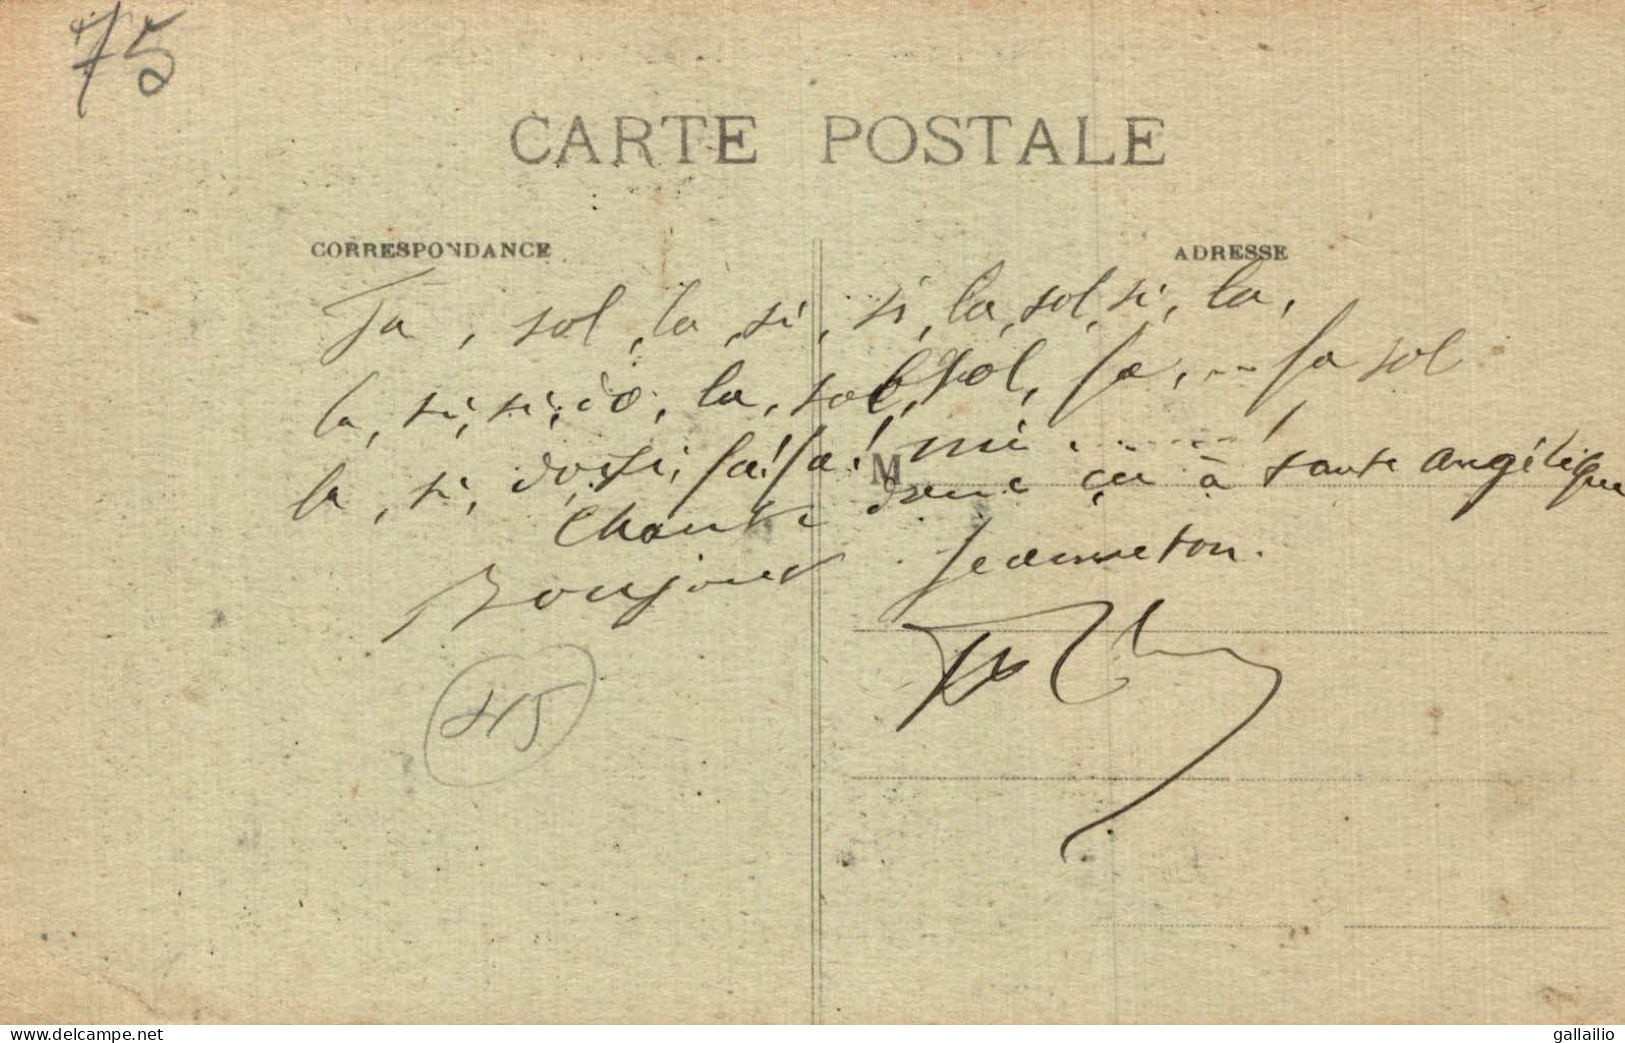 75
CARTE POSTALE
CORRESPONDANCE
ADRESSE
Fa, sol, la, si, si, la, sol, si, la,
la, si, si, do, la, sol, sol, fa, ... fa sol
la, si, do, si, fa! fa! mi ........!
M
Chante donc ça à tante Angélique
Bonjour Jeanneton.
www.delcampe.net
gallailio